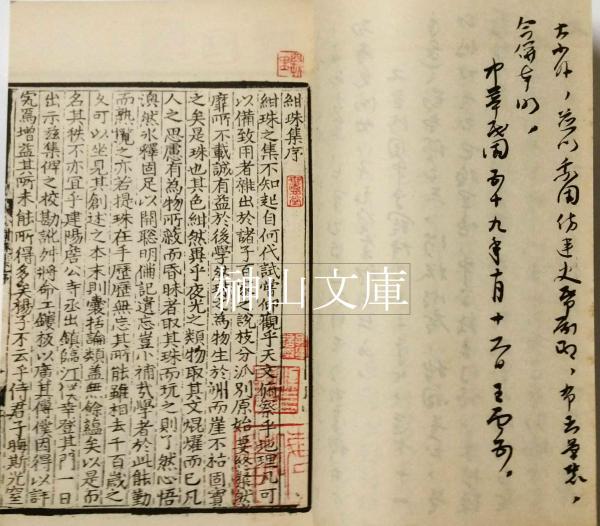 今併出版，
中華民國五十九年十月十二日 王雲五。
紺珠集序
紺珠之集不知起自何代試嘗仰觀乎天文俯察乎地理凡可
以備致用者雜出於諸子百家之說枝分派別原始要終纚然
靡所不載誠有益於後學然珠之為物生於淵而崖不枯固寶
之矣是珠也其色紺然異乎夜光之類物取其文焜燿而已凡
人之思慮有為物所蔽而昏昧者取其珠而玩之則了然心悟
渙然冰釋固足以開聰明備記遺忘豈小補哉學者於此能勤
而熟覽之亦若提珠在手歷歷無忘其所能雖相去千百歲之
久可以坐見其創述之本末則囊括論類蓋無餘蘊矣以是而
名其秩不亦宜乎建陽詹公寺丞出鎮臨江天幸登其門一日
出示茲集俾之校勘訛舛將命工鏤板以廣其傳僕因得以詳
究焉增益其所未能所得多矣揚子不云乎侍君子晦斯光窒
榊山文庫